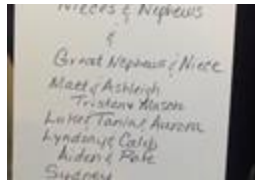 Nieces & Nephews
&
Great Nephews & Niece
Matt & Ashleigh
Tristen & Mason
Luke, Tania, Aurora
Lyndsay & Caleb
Aiden & Pate
Sydney